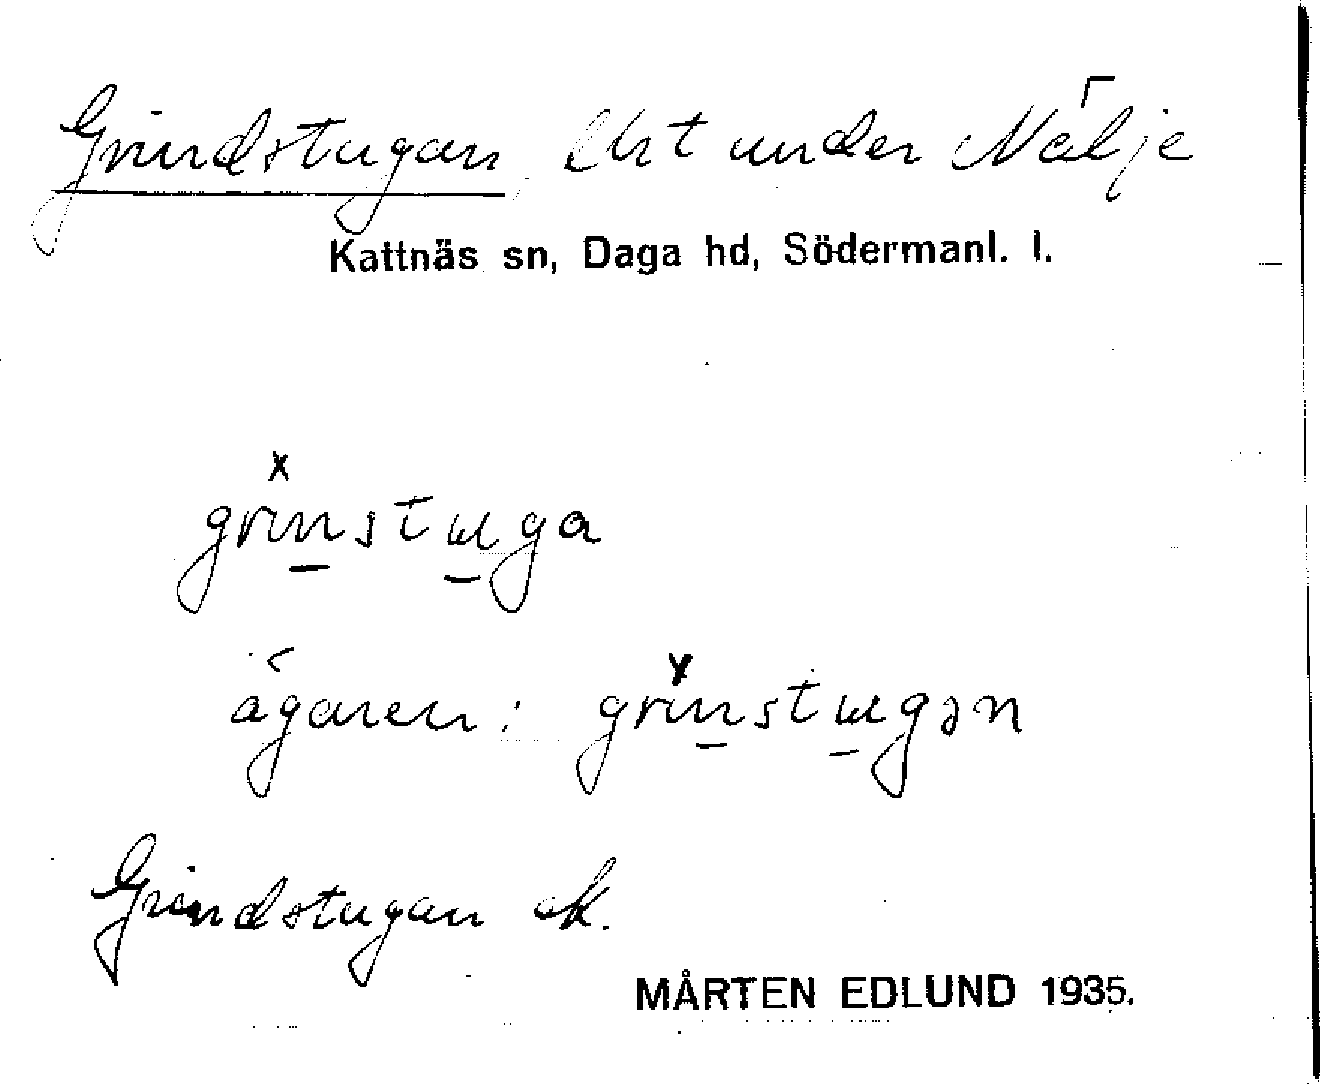 Grindstugan, Urt under Nälje
Kattnäs sn, Daga hd, Södermanl. l.
grinstuga
ägaren: grinstugən
Grindstugan ek.
MÅRTEN EDLUND 1935.